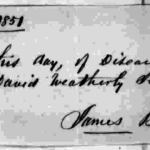 1851
his day, of Disea
David Weatherly
James